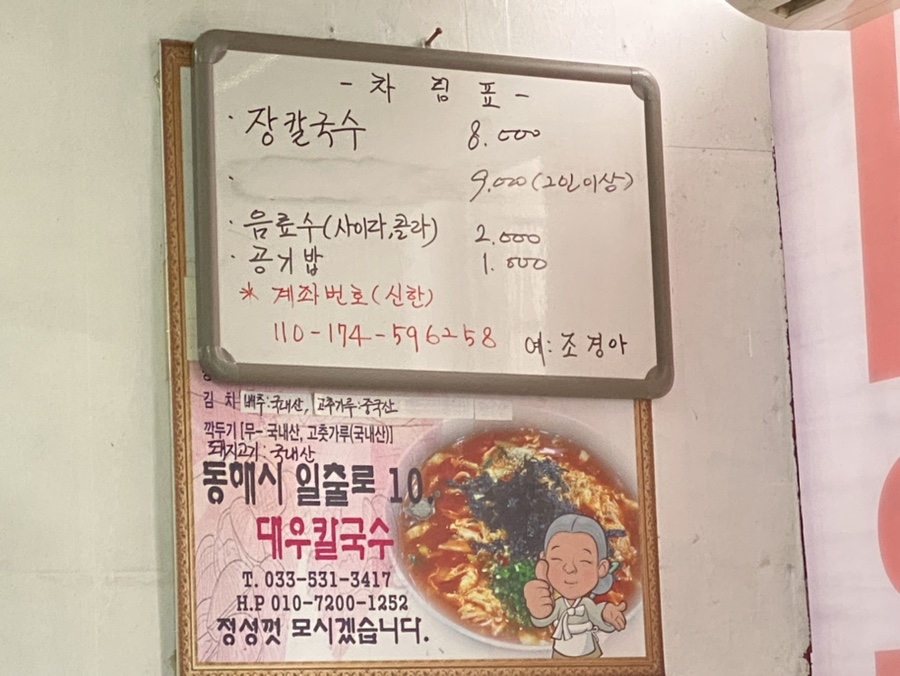 - 차 림 표 -
· 장칼국수 8.000
· 9.000 (2인이상)
· 음료수(사이다,콜라) 2.000
· 공기밥 1.000
* 계좌번호(신한)
110-174-596258 예: 조경아
김 치 배추:국내산, 고추가루:중국산
깍두기 [무- 국내산, 고춧가루(국내산)]
돼지고기: 국내산
동해시 일출로 10
대우칼국수
T. 033-531-3417
H.P 010-7200-1252
정성껏 모시겠습니다.